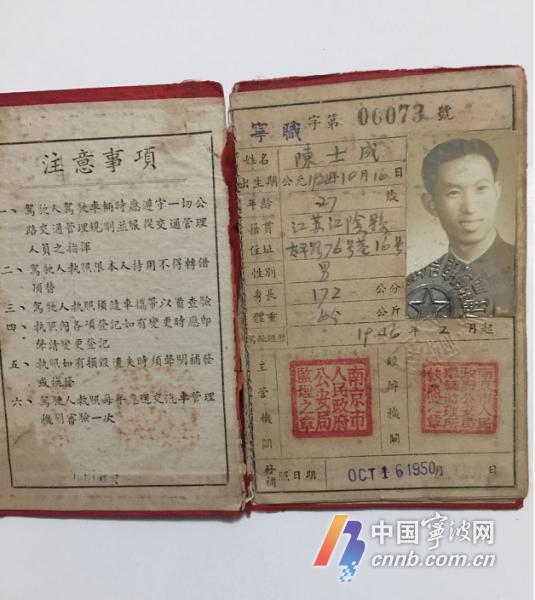 注意事項
一、駕駛人駕駛車輛時應遵守一切公
路交通管理規則並服從交通管理
人員之指揮
二、駕駛人執照限本人持用不得轉借
頂替
三、駕駛人執照須隨車攜帶以葡查驗
四、執照內各項登記如有變更時應即
聲請變更登記
五、執照如有損毀遺失時須聲明補發
或換發
六、駕駛人執照每年應送交汽車管理
機關審驗一次
寧職字第 06073 號
姓名 陳士成
出生期 公元1924年10月16日
年齡 27 歲
籍貫 江苏江陰縣
住址 太平路76号巷16号
性別 男
身長 172 公分
體重 65 公斤
1946 年 2 月起
主管機關
南京市
人民政府
公安局
監理之章
經辦機關
照日期 OCT 16 1950 月 日
中国宁波网
www.cnnb.com.cn